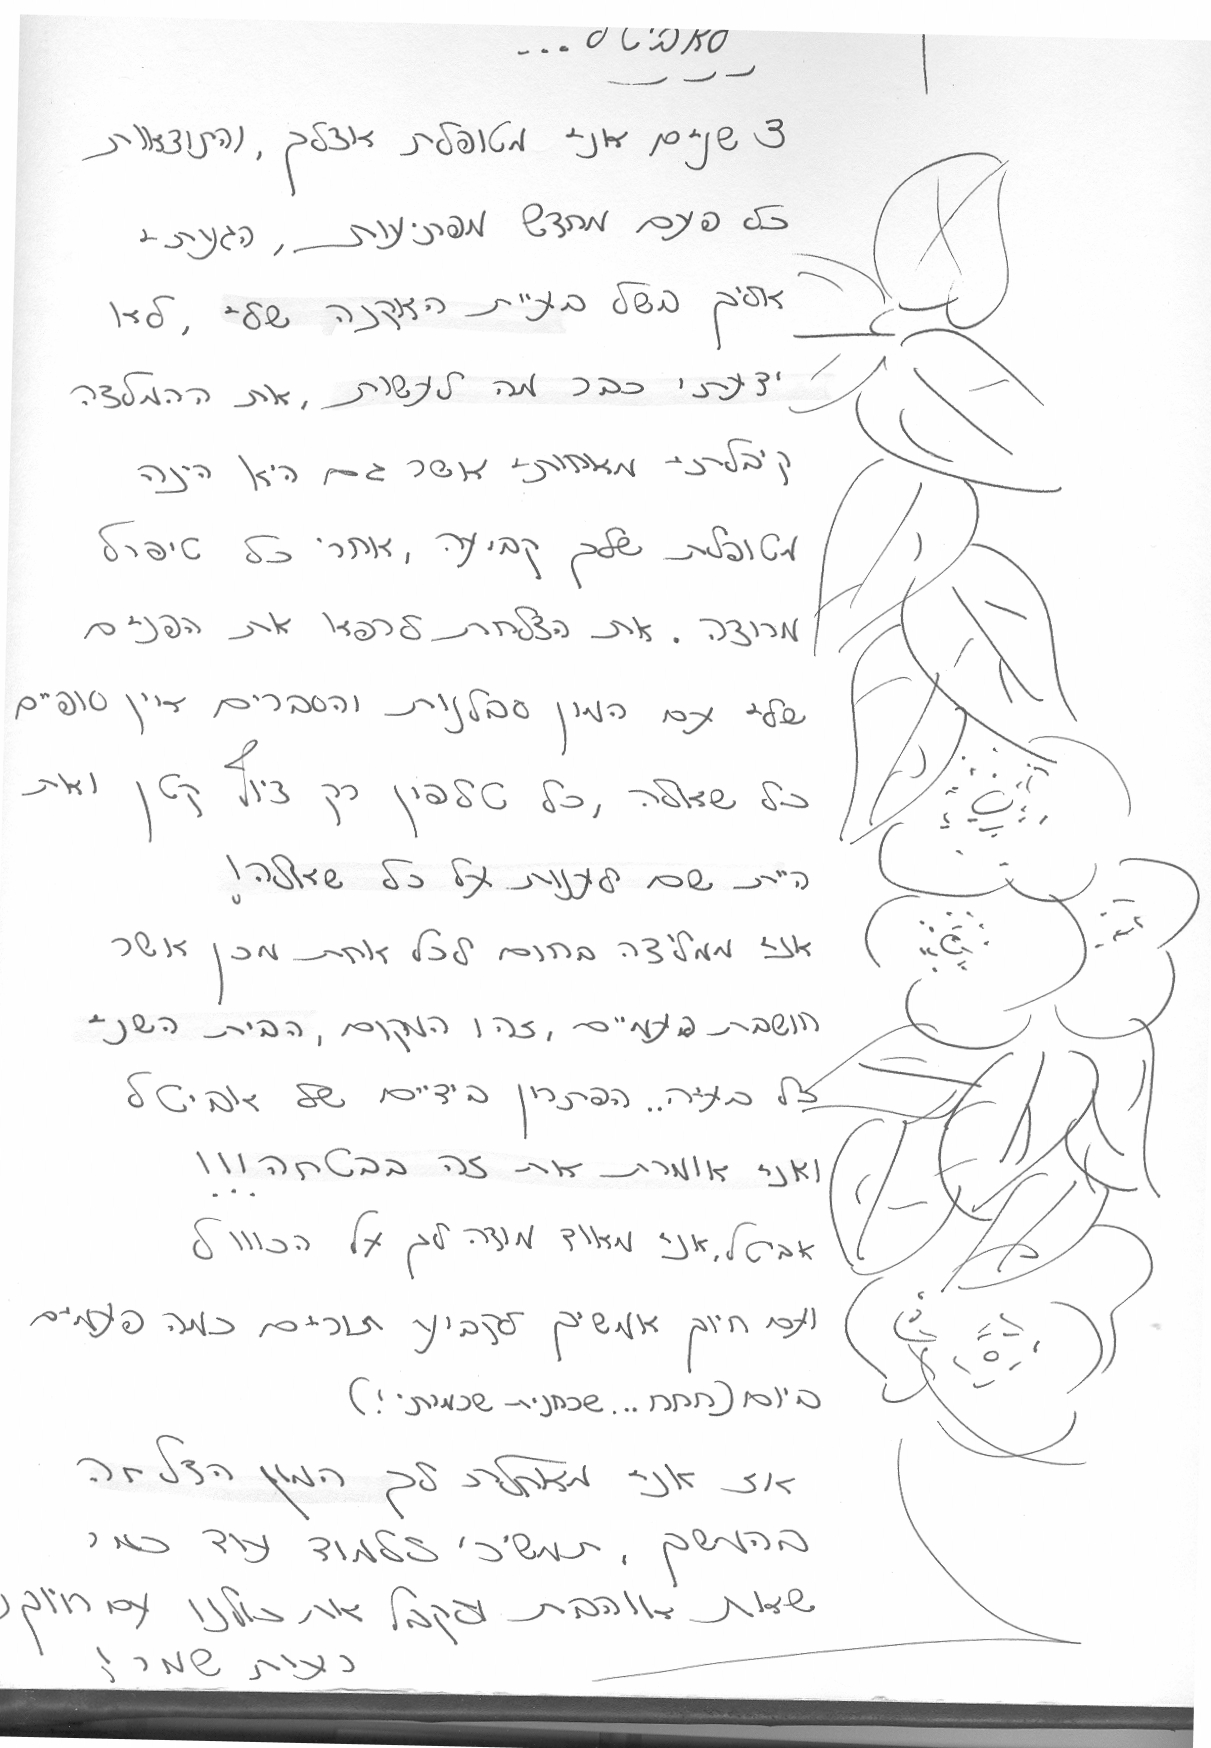 לאביטל...
3 שנים אני מטופלת אצלך, והתוצאות
כל פעם מחדש מפתיעות, הגעתי
אליך בשל בעיית האקנה שלי, לא
ידעתי כבר מה לעשות, את ההמלצה
קיבלתי מאחותי אשר גם היא הינה
מטופלת שלך קבועה, אחרי כל טיפול
מרוצה. את הצלחת לרפא את הפנים
שלי עם המון סבלנות והסברים אין סופיים
כל שאלה, כל טלפון רק צילצול קטן ואת
היית שם לענות על כל שאלה!
אני ממליצה בחום לכל אחת מכן אשר
חושבת פעמיים, זהו המקום, הבית השני
לכל בעיה.. הפתרון בידיים של אביטל
ואני אומרת את זה בבטחה!!!
אביטל, אני מאוד מודה לך על הכוווול
ועם חיוך אמשיך לקבוע תורים כמה פעמים
ביום (חחח... שכחנית שכמותי!)
אז אני מאחלת לך המון הצלחה
בהמשך, תמשיכי ללמוד עוד כמו
שאת אוהבת ולקבל את כולנו עם חיוך
רעות שמר!